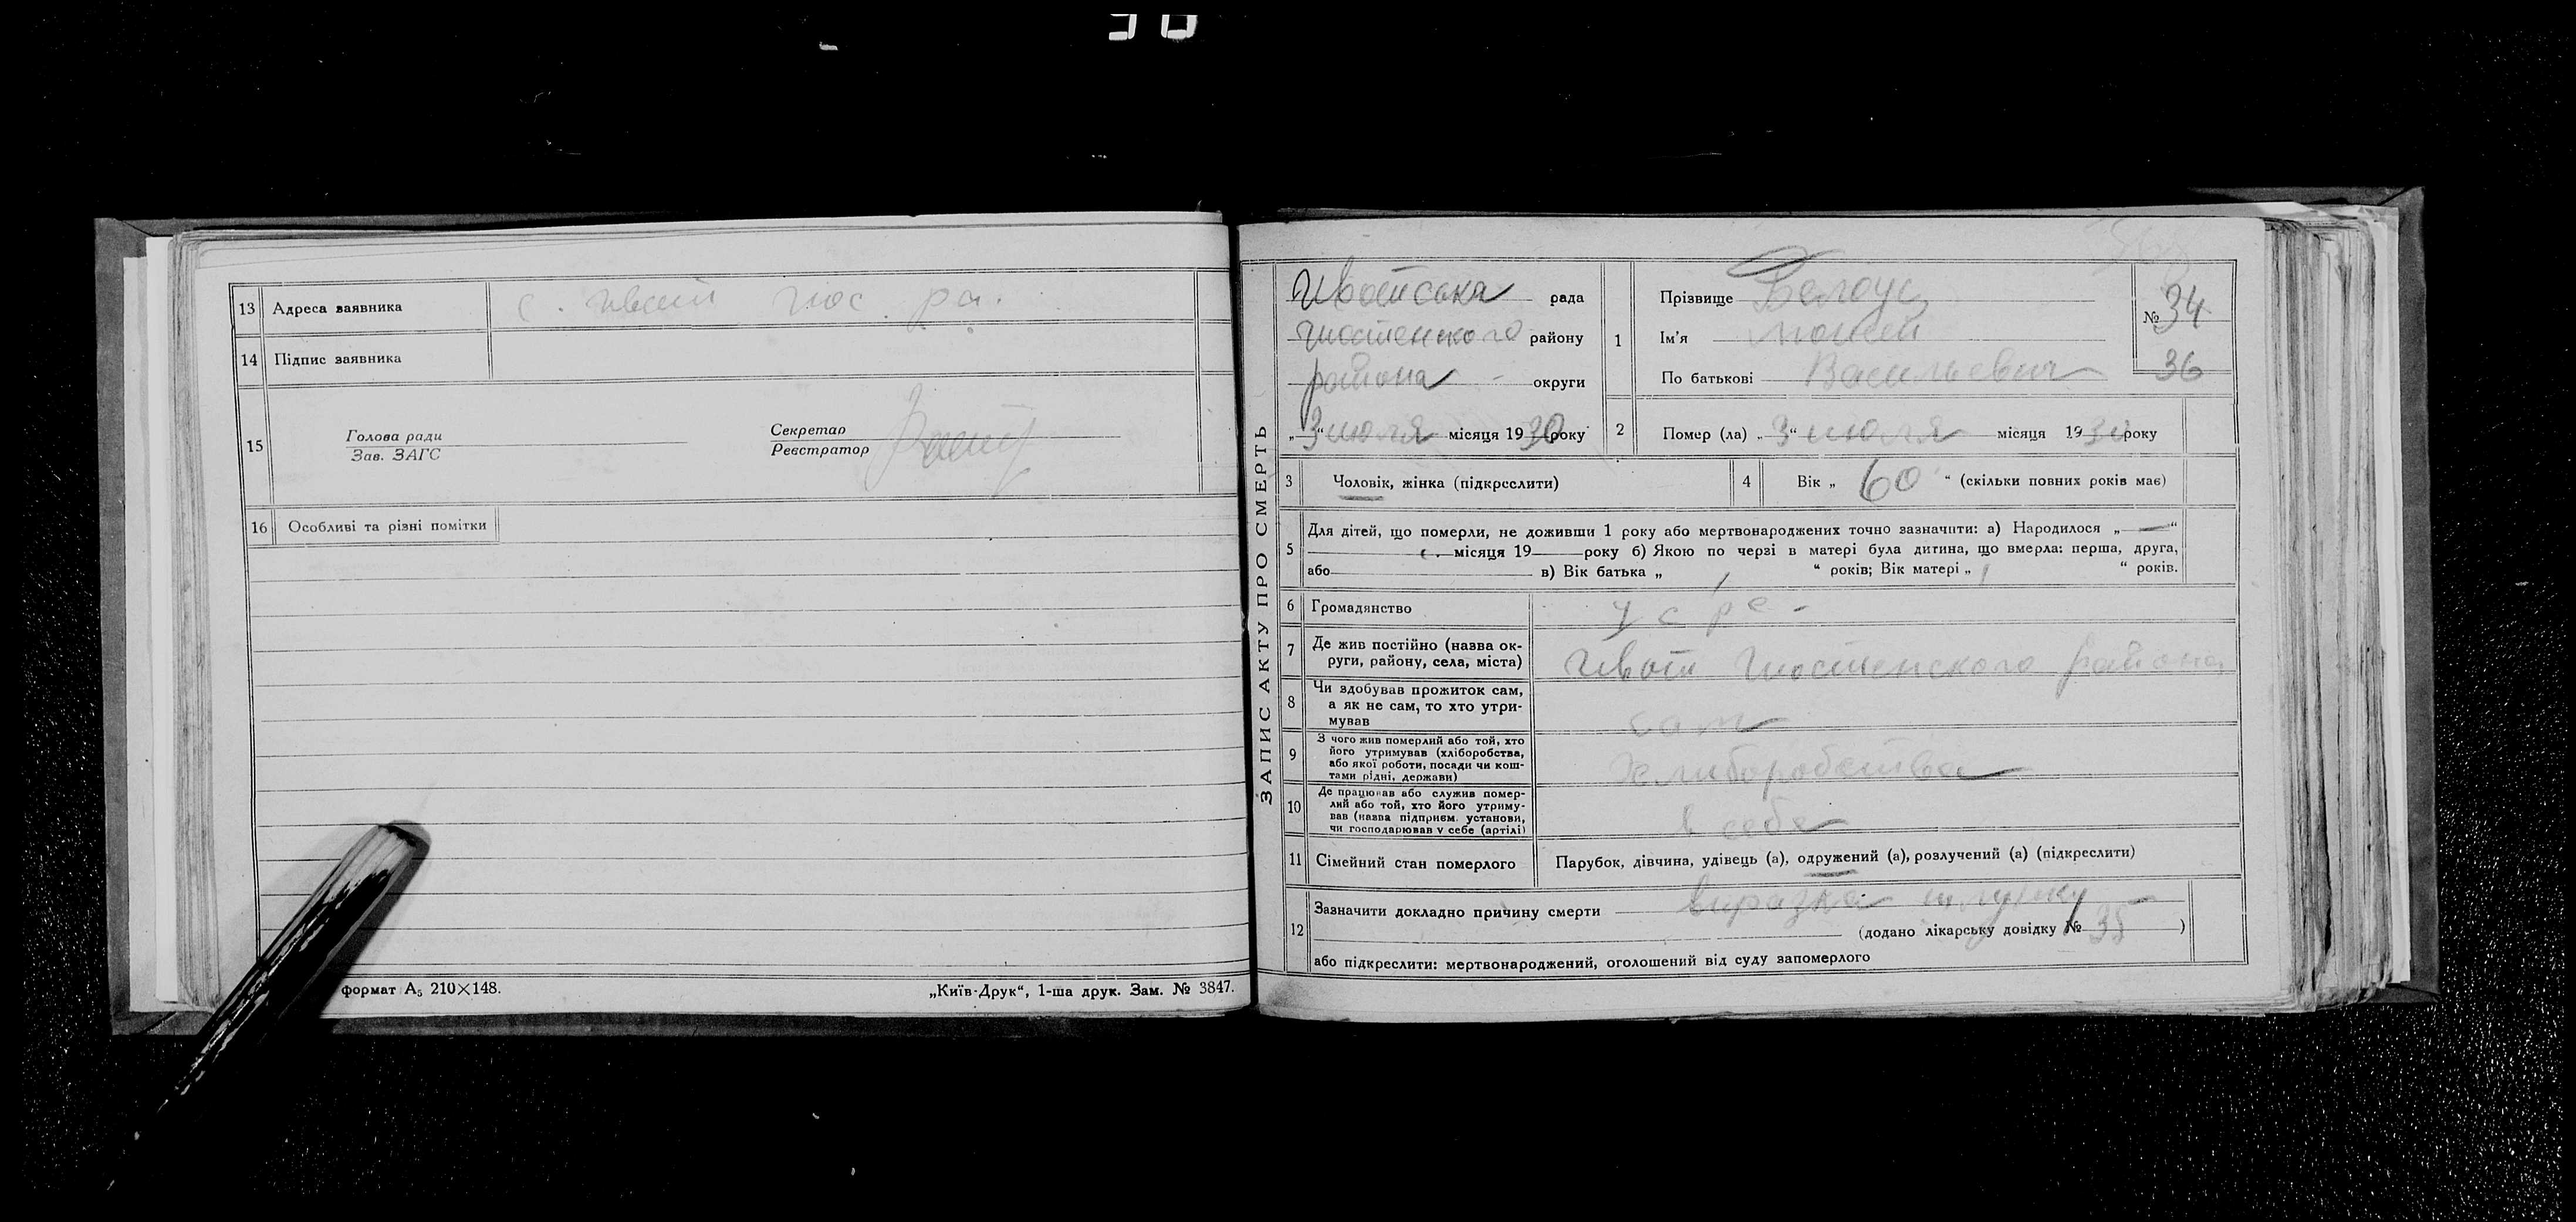 13 Адреса заявника с. Ивот шос. ра.
14 Підпис заявника
15 Голова ради
Зав. ЗАГС
Секретар
Реєстратор
16 Особливі та різні помітки
формат А5 210×148.
„Київ-Друк“, 1-ша друк. Зам. № 3847.
ЗАПИС АКТУ ПРО СМЕРТЬ
Ивотська рада
Шостенского району
района округи
„3“ июля місяця 1930 року
1 Прізвище Белоус
Ім'я
По батькові Васильевич
№ 34
36
2 Помер (ла) „3“ июля місяця 1930 року
3 Чоловік, жінка (підкреслити)
4 Вік „60“ (скільки повних років має)
5 Для дітей, що померли, не доживши 1 року або мертвонароджених точно зазначити: а) Народилося „—“
місяця 19 року б) Якою по черзі в матері була дитина, що вмерла: перша, друга,
або в) Вік батька „ “ років; Вік матері „ “ років.
6 Громадянство усрс
7 Де жив постійно (назва ок-
руги, району, села, міста) Ивот Шостенского района
8 Чи здобував прожиток сам,
а як не сам, то хто утри-
мував сам
9 З чого жив померлий або той, хто
його утримував (хліборобства,
або якої роботи, посади чи кош-
тами рідні, держави) Хлиборобства
10 Де працював або служив помер-
лий або той, хто його утриму-
вав (назва підприєм. установи,
чи господарював у себе (артілі) в себе
11 Сімейний стан померлого Парубок, дівчина, удівець (а), одружений (а), розлучений (а) (підкреслити)
12 Зазначити докладно причину смерти виразка шлунку
(додано лікарську довідку № 35)
або підкреслити: мертвонароджений, оголошений від суду запомерлого